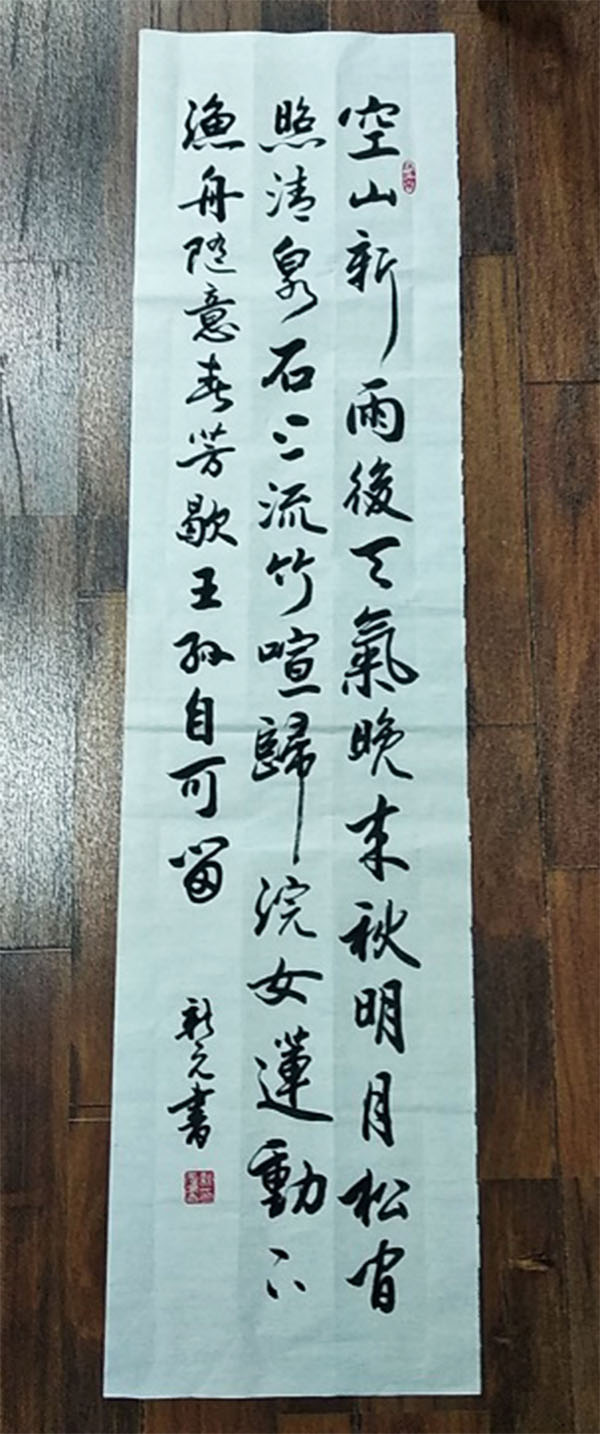 空山新雨後天氣晚来秋明月松間
照清泉石上流竹喧歸浣女蓮動下
漁舟隨意春芳歇王孫自可留
新元書